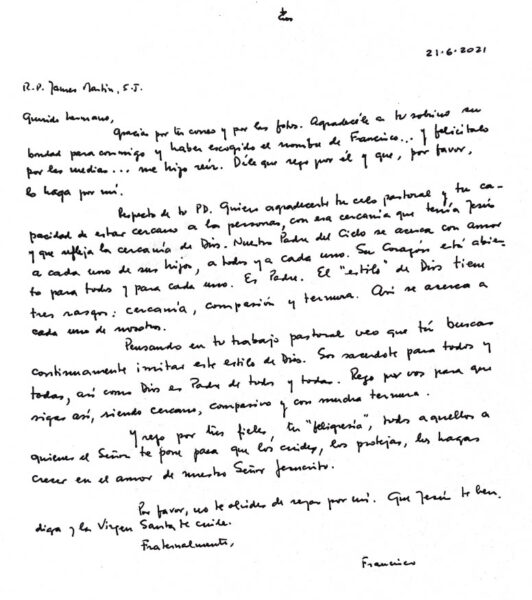 21-6-2021
R.P. James Martin, S.J.
Querido hermano,
Gracias por tu correo y por las fotos. Agradecéle a tu sobrino su
bondad para conmigo y haber escogido el nombre de Francisco... y felicitalo
por las medias... me hizo reír. Dile que rezo por él y que, por favor,
lo haga por mí.
Respecto de tu PD. Quiero agradecerte tu celo pastoral y tu ca-
pacidad de estar cercano a las personas, con esa cercanía que tenía Jesús
y que refleja la cercanía de Dios. Nuestro Padre del Cielo se acerca con amor
a cada uno de sus hijos, a todos y a cada uno. Su Corazón está abier-
to para todos y para cada uno. Es Padre. El "estilo" de Dios tiene
tres rasgos: cercanía, compasión y ternura. Así se acerca a
cada uno de nosotros.
Pensando en tu trabajo pastoral veo que tú buscas
continuamente imitar este estilo de Dios. Sos sacerdote para todos y
todas, así como Dios es Padre de todos y todas. Rezo por vos para que
sigas así, siendo cercano, compasivo y con mucha ternura.
Y rezo por tus fieles, tu "feligresía", todos aquellos a
quienes el Señor te pone para que los cuides, los protejas, los hagas
crecer en el amor de nuestro Señor Jesucristo.
Por favor, no te olvides de rezar por mí. Que Jesús te ben-
diga y la Virgen Santa te cuide.
Fraternalmente,
Francisco